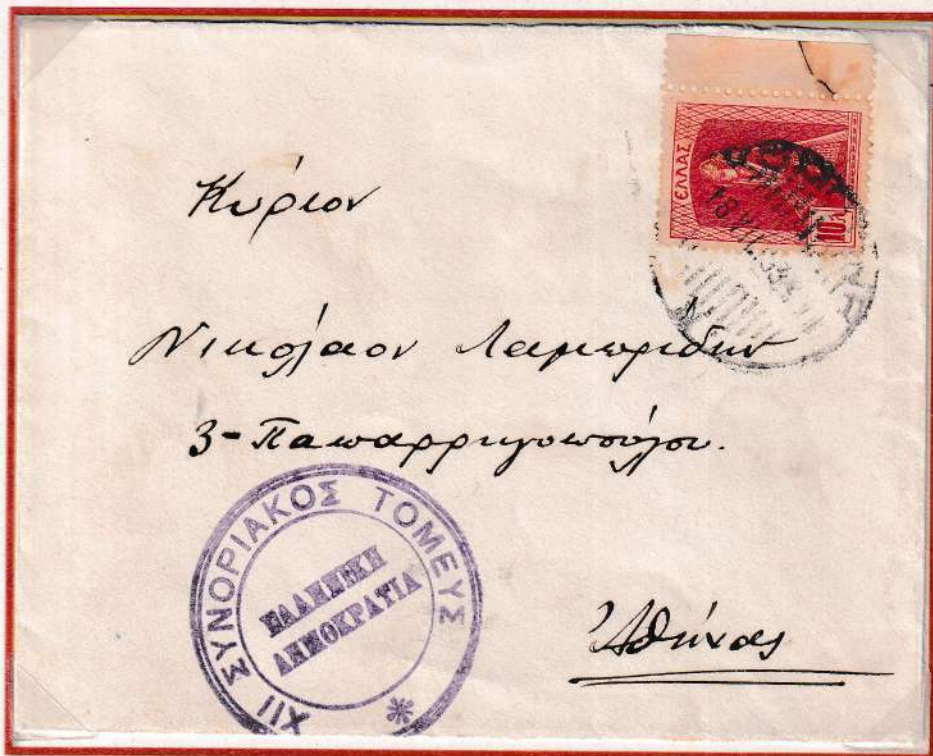 ΕΛΛΑΣ
10
Κύριον
Νικόλαον Λαμπρίδην
3-Παπαρρηγοπούλου.
Ἀθήνας
XII ΣΥΝΟΡΙΑΚΟΣ ΤΟΜΕΥΣ
ΕΛΛΗΝΙΚΗ
ΔΗΜΟΚΡΑΤΙΑ